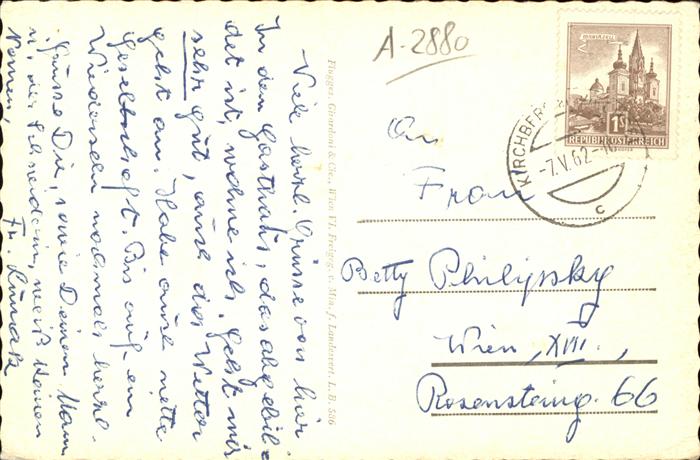 A-2880
MARIAZELL
1S
REPUBLIK ÖSTERREICH
KIRCHBERG
-7.V.62-
c
An
Frau
Betty Philipsky
Wien, XVII.,
Rosensteing. 66
Flugger, Girardoni & Co., Wien VI. Freigeg. v. Min. f. Landesvert. L. B. 586
Viele herzl. Grüsse von hier
In dem Gasthaus, das abgebil-
det ist, wohne ich. Geht mir
sehr gut, auch das Wetter
geht an. Habe eine nette
Gesellschaft. Bis auf ein
Wiedersehn nochmals herzl.
Grüsse Dir, sowie Deinem Mann
u. der Schneiderin, weiß keinen
Namen,